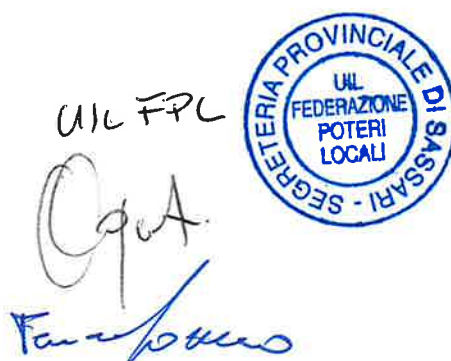 UIL FPL
SEGRETERIA PROVINCIALE DI SASSARI -
UIL
FEDERAZIONE
POTERI
LOCALI